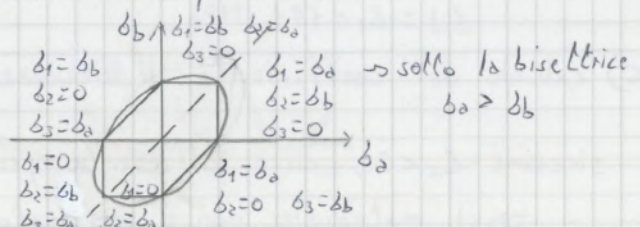 σb σ1=σb σ2=σa
σ3=0
σ1=σb
σ2=0
σ3=σa
σ1=σa → sotto la bisettrice
σ2=σb σa > σb
σ3=0
σa
σ1=0
σ2=σb
σ3=σa
σ1=0
σ2=σa
σ1=σa
σ2=0 σ3=σb